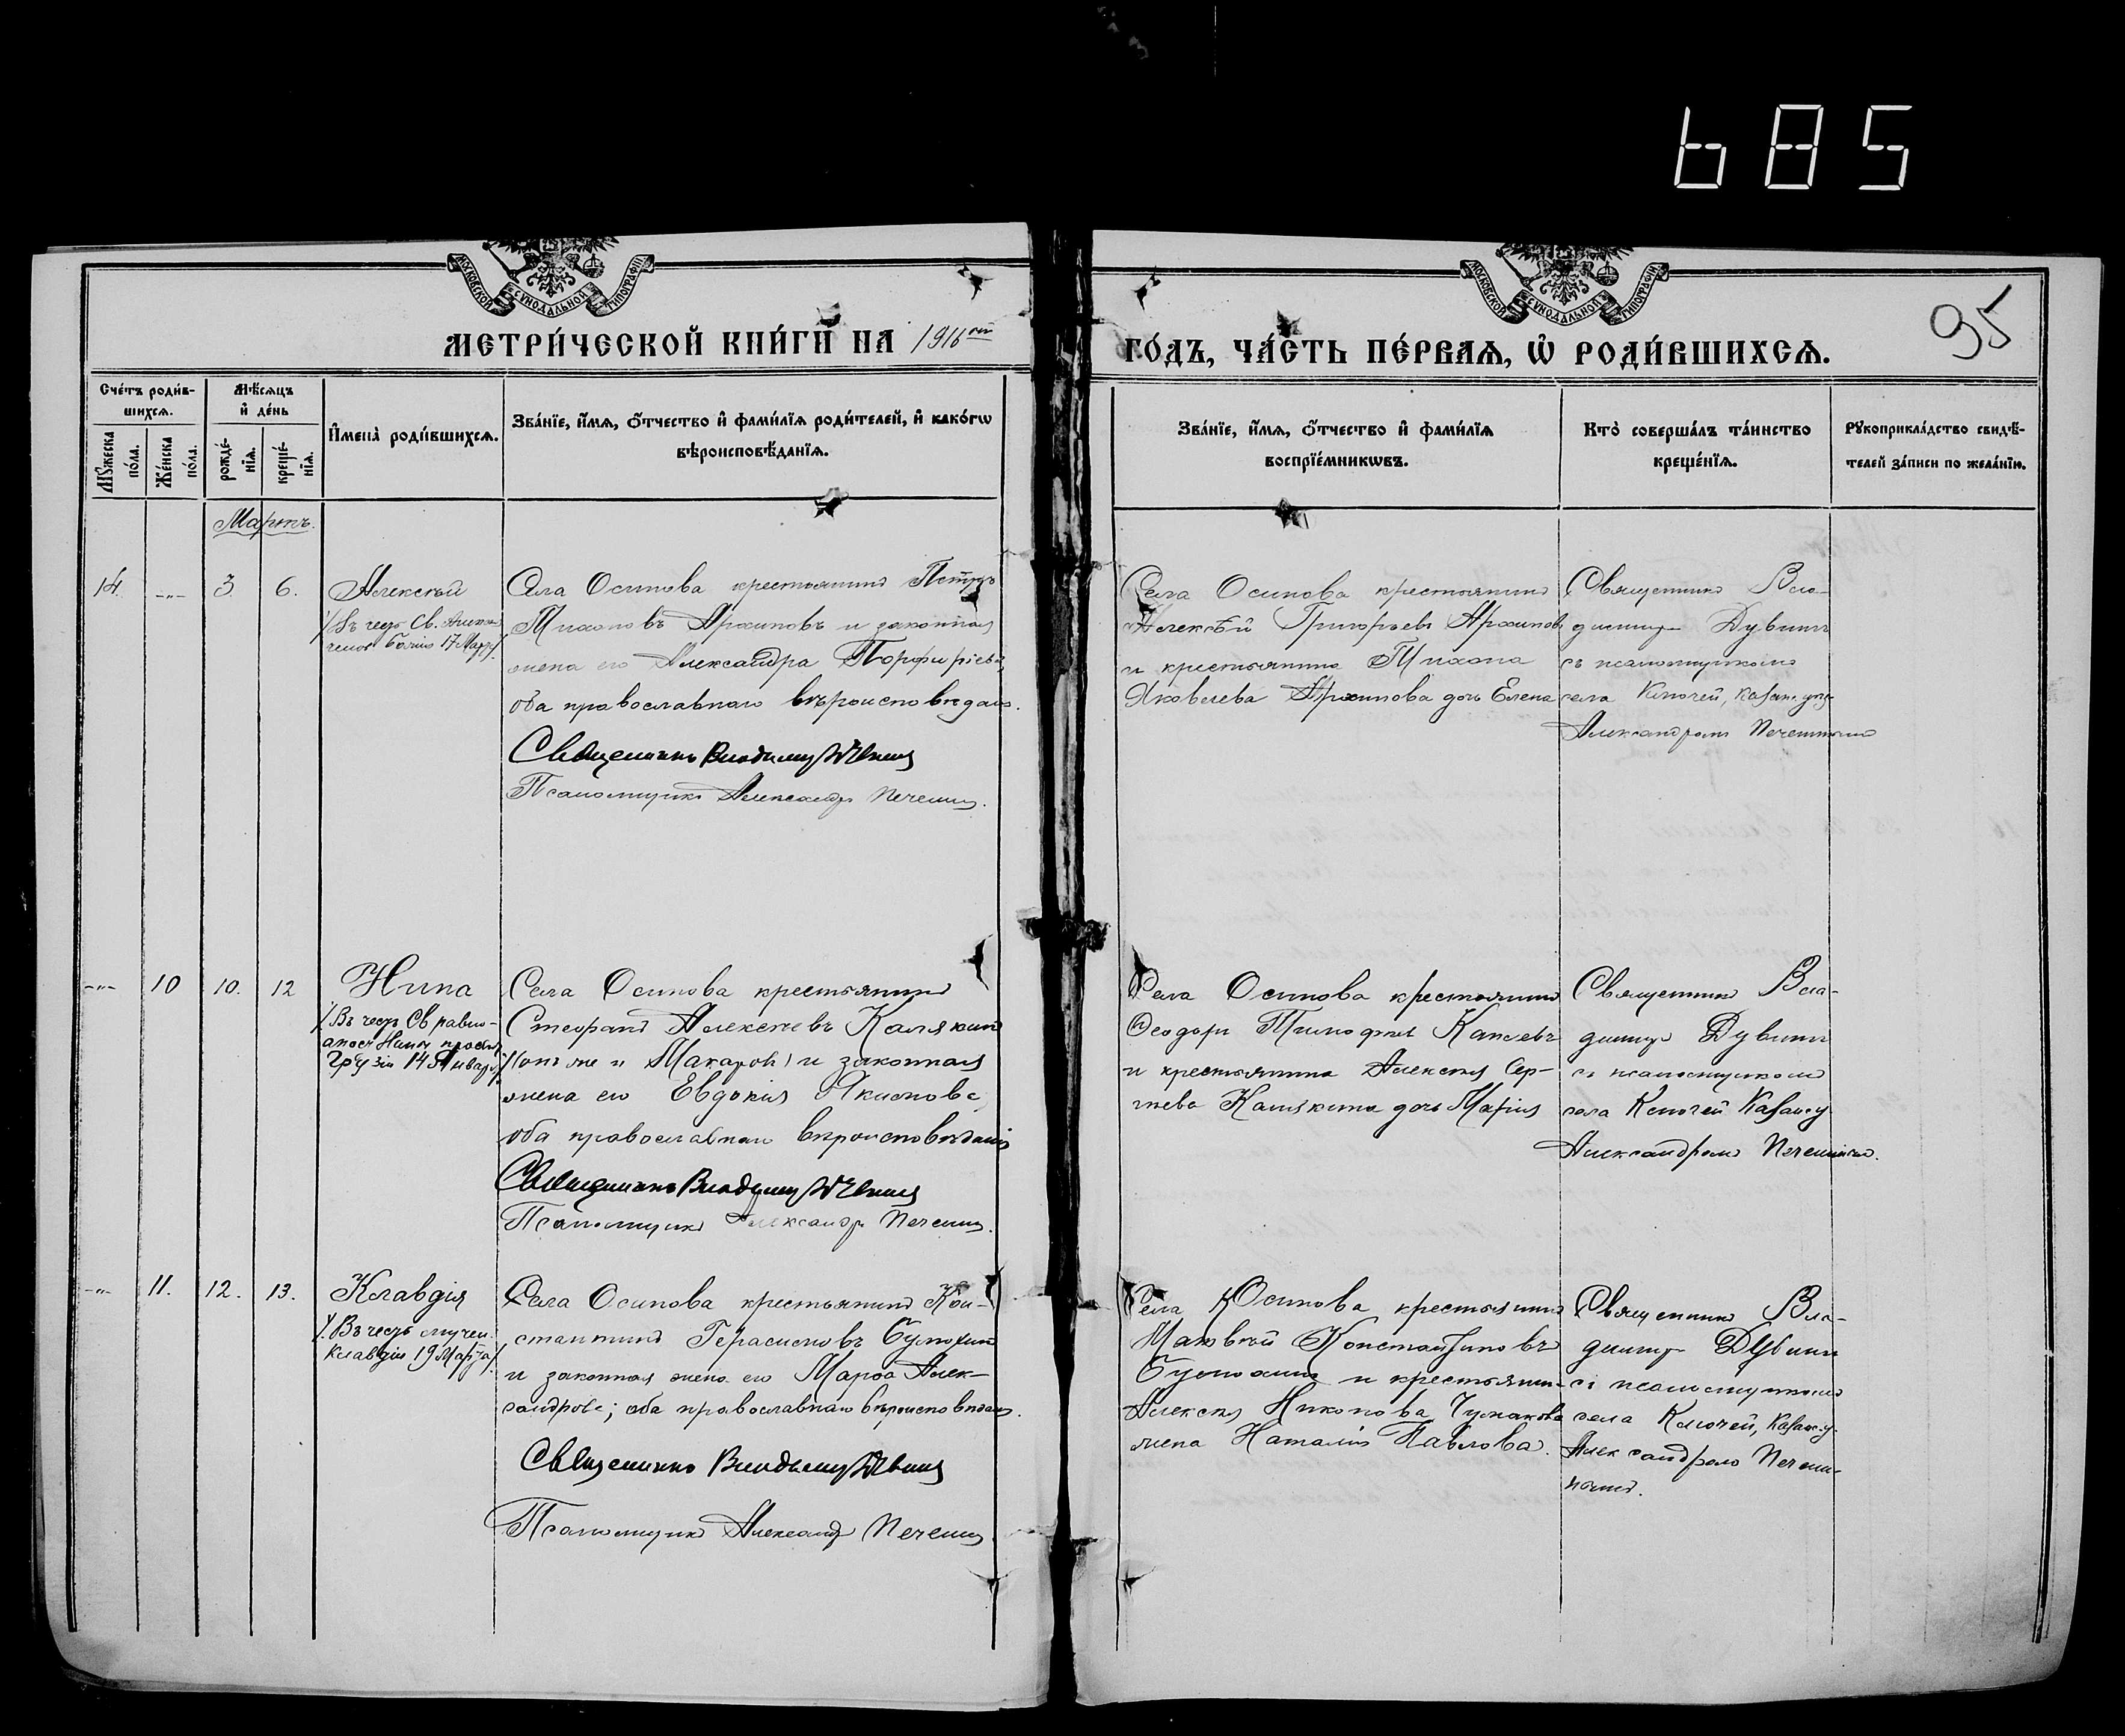 685
МОСКОВСКОЙ СѴНОДАЛЬНОЙ ТИПОГРАФІИ
МОСКОВСКОЙ СѴНОДАЛЬНОЙ ТИПОГРАФІИ
95
МЕТРИ́ЧЕСКОЙ КНИ́ГИ НА 1916 ой
ГО́ДЪ, ЧА́СТЬ ПЕ́РВАѦ, Ѡ РОДИ́ВШИХСѦ.
Сче́тъ роди́в-
шихсѧ.
Мꙋ́жеска по́ла.
Же́нска по́ла.
Мѣ́сѧцъ
и де́нь
рожде́-
нїѧ.
креще́-
нїѧ.
Имена̀ роди́вшихсѧ.
Зва́нїе, и́мѧ, о́тчество и фами́лїѧ роди́телей, и како́гѡ
вѣроисповѣ́данїѧ.
Зва́нїе, и́мѧ, о́тчество и фами́лїѧ
воспрїе́мникѡвъ.
Кто̀ соверша́лъ та́инство
креще́нїѧ.
Рꙋкоприкла́дство свидѣ́-
телей за́писи по жела́нїю.
Мартъ.
14. -„- 3. 6. Алексѣй
/Въ честь Св. Алексѣя
Божія 17 Марта/
Села Осипова крестьянинъ Петръ
Тихоновъ Архиповъ и законная
жена его Александра Порфирьева,
оба православнаго вѣроисповѣданія.
Священникъ Владимиръ Дубкинъ
Псаломщикъ Александръ Печешинъ.
Села Осипова крестьянинъ
Алексѣй Григорьевъ Архиповъ
и крестьянина Тихона
Яковлева Архипова дочь Елена
Священникъ Вла-
димиръ
съ псаломщикомъ
села Ключей, Казан. у.
Александромъ
-„- 10 10. 12 Нина
/Въ честь Св. равно-
апост. Нины просвѣт.
Грузіи 14 Января/
Села Осипова крестьянинъ
Стефанъ Алексеевъ Калякинъ
/онъ же и Макаровъ/ и законная
жена его Евдокія Якимова,
оба православнаго вѣроисповѣданія
Священникъ Владимиръ
Псаломщикъ Александръ Печешинъ.
Села Осипова крестьянинъ
Ѳеодоръ Тимофеевъ
и крестьянина Алексѣя Сер-
гѣева Калякина дочь Марія
Священникъ Вла-
димиръ
съ псаломщикомъ
села Ключей Казан. у.
Александромъ
-„- 11. 12. 13. Клавдія
/Въ честь мучен.
Клавдіи 19 Марта/
Села Осипова крестьянинъ Кон-
стантинъ Герасимовъ
и законная жена его Марѳа Алек-
сандрова; оба православнаго вѣроисповѣданія.
Священникъ Владимиръ
Псаломщикъ Александръ Печешинъ
Села Осипова крестьянинъ
Матвѣй Константиновъ
и крестьянина
Алексѣя Никонова Чумакова
жена Наталія Павлова.
Священникъ Вла-
димиръ
съ псаломщикомъ
села Ключей, Казан. у.
Александромъ